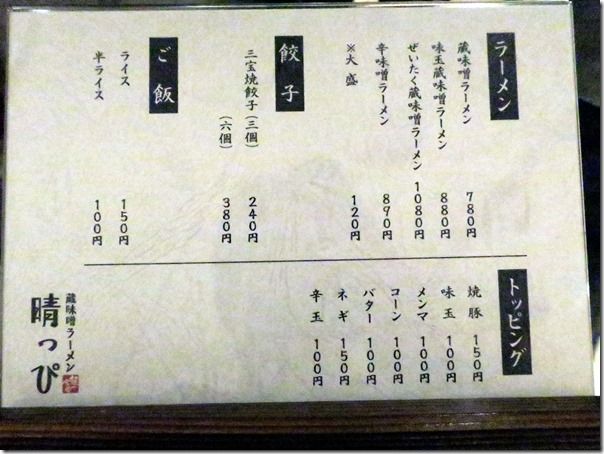 ラーメン
蔵味噌ラーメン 780円
味玉蔵味噌ラーメン 880円
ぜいたく蔵味噌ラーメン 1080円
辛味噌ラーメン 890円
※大盛 120円
餃子
三宝焼餃子(三個) 240円
(六個) 380円
ご飯
ライス 150円
半ライス 100円
トッピング
焼豚 150円
味玉 100円
メンマ 100円
コーン 100円
バター 100円
ネギ 150円
辛玉 100円
蔵味噌ラーメン
晴っぴ